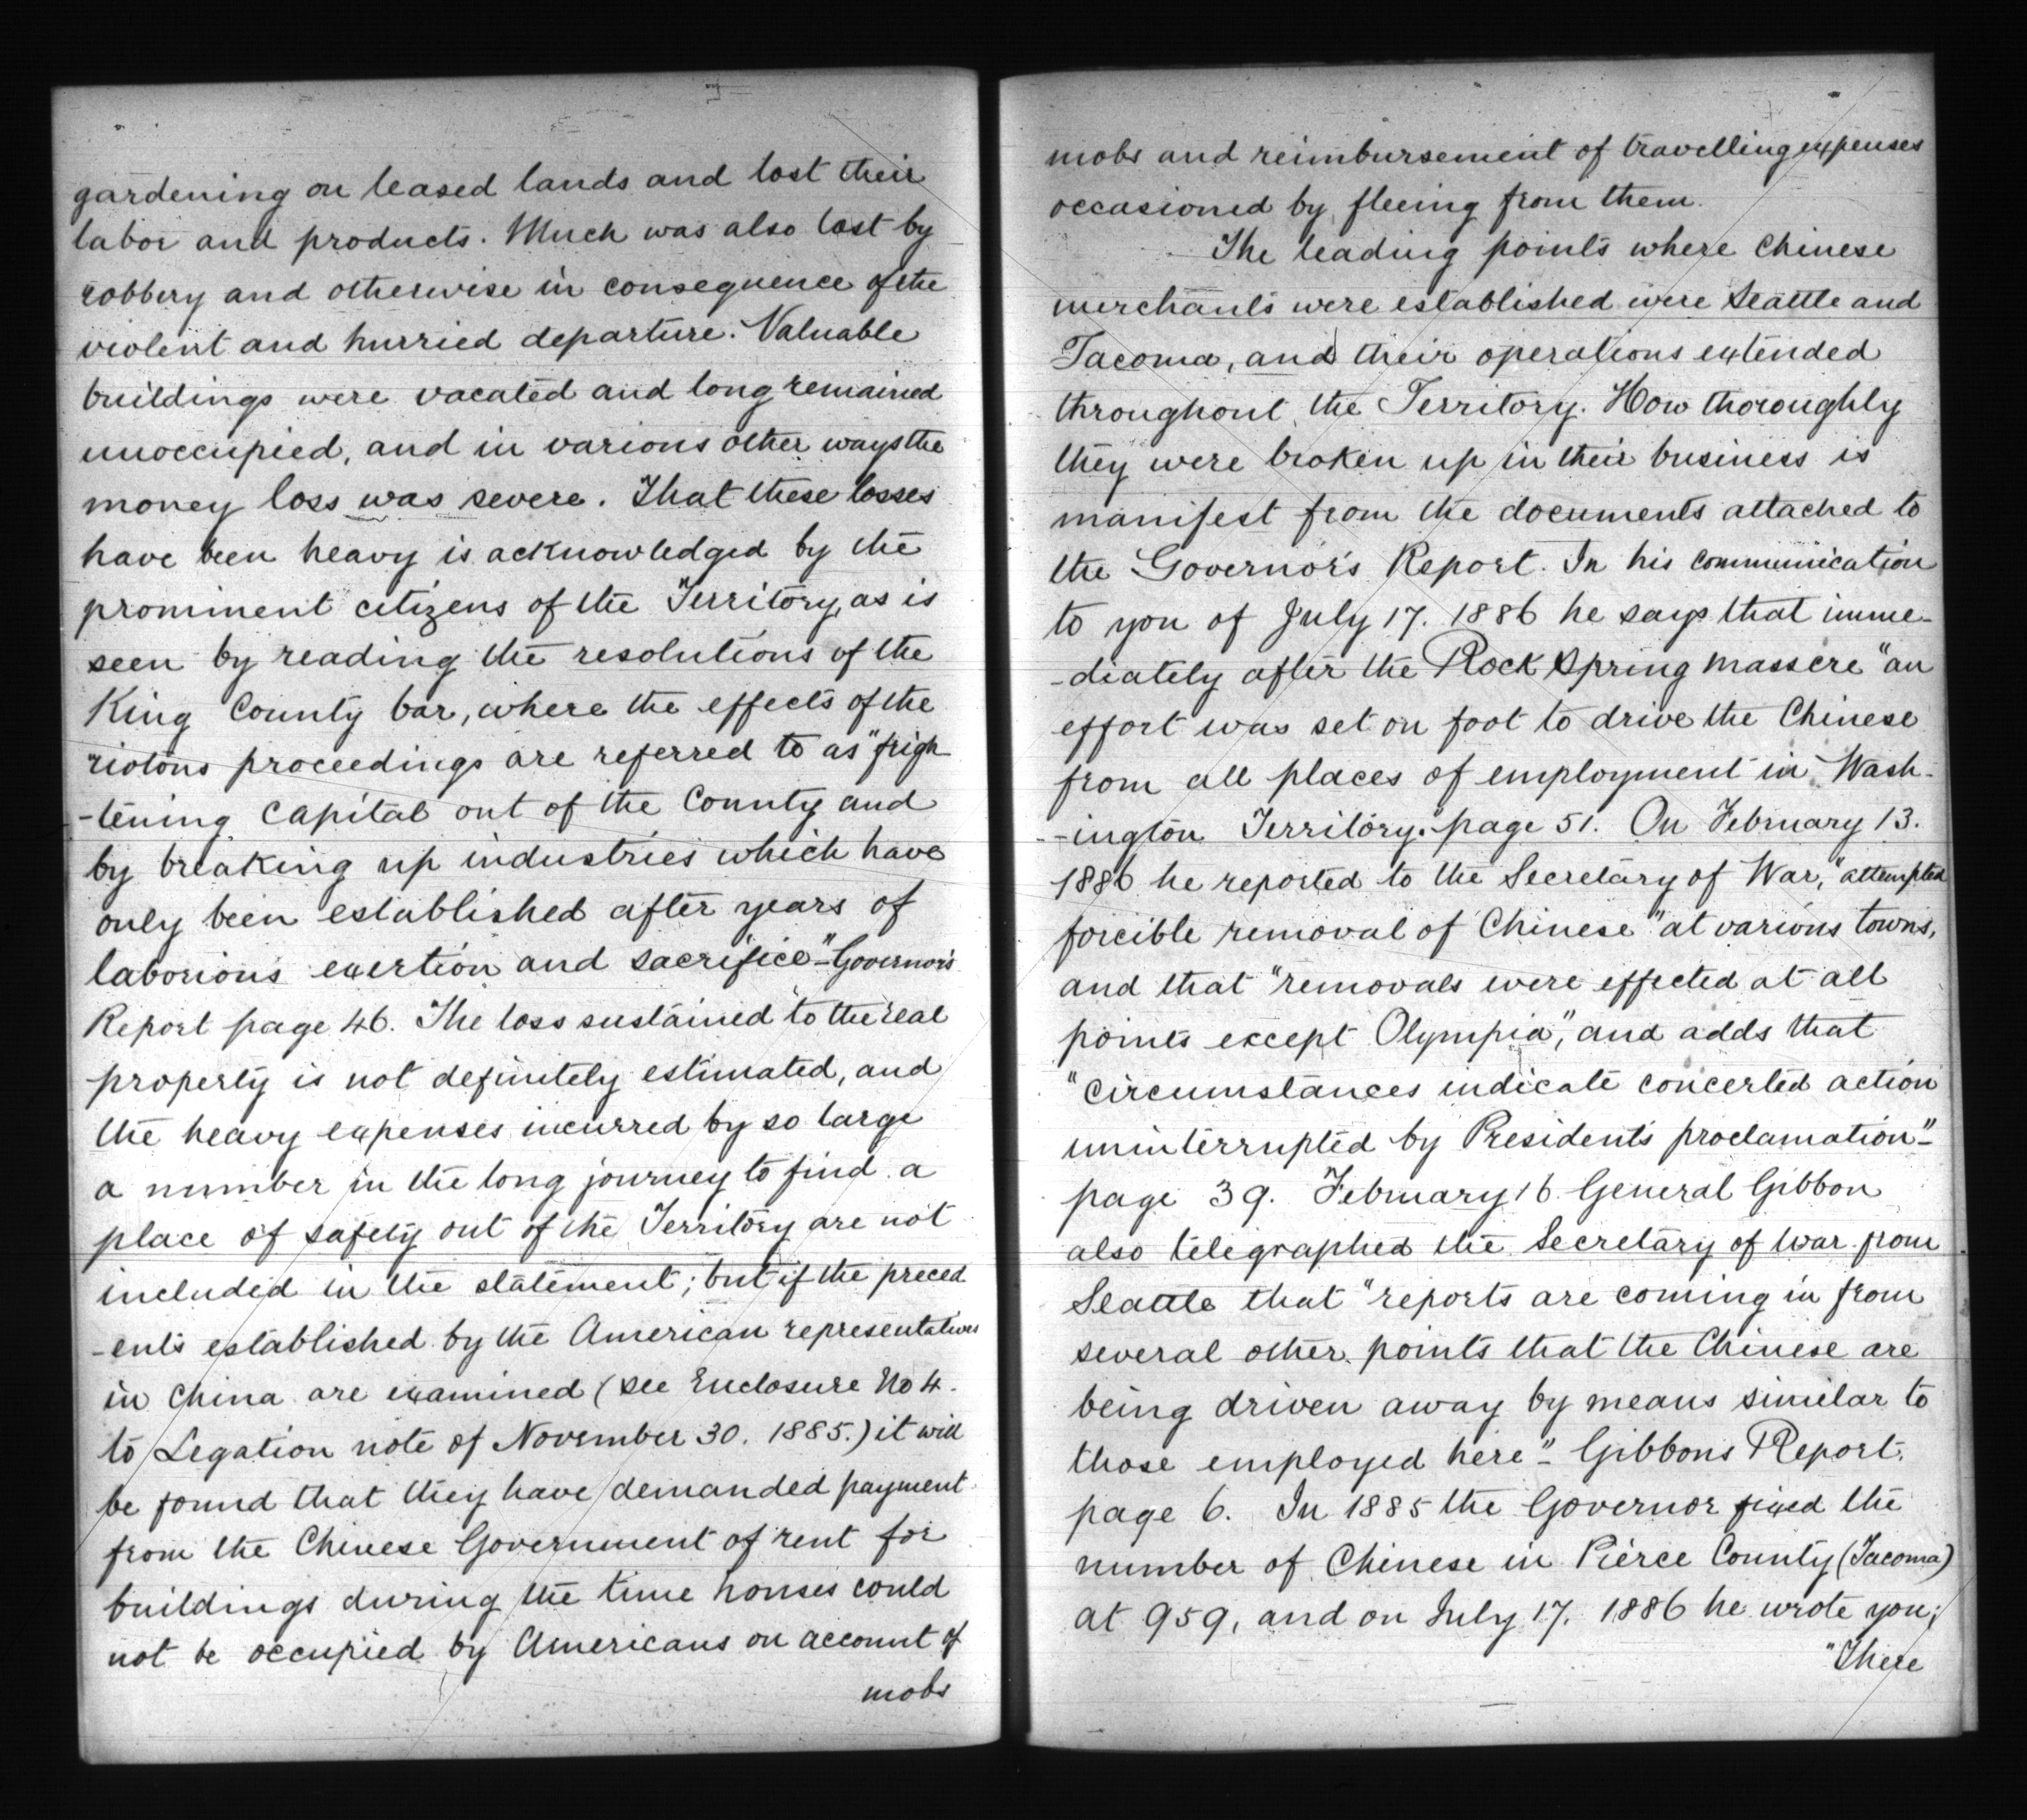 gardening on leased lands and lost their
labor and products. Much was also lost by
robbery and otherwise in consequence of the
violent and hurried departure. Valuable
buildings were vacated and long remained
unoccupied, and in various other ways the
money loss was severe. That these losses
have been heavy is acknowledged by the
prominent citizens of the Territory, as is
seen by reading the resolutions of the
King County bar, where the effects of the
riotous proceedings are referred to as "frigh
-tening capital out of the County and
by breaking up industries which have
only been established after years of
laborious exertion and sacrifice"-Governor's
Report page 46. The loss sustained to the real
property is not definitely estimated, and
the heavy expenses incurred by so large
a number in the long journey to find a
place of safety out of the Territory are not
included in the statement; but if the preced
-ents established by the American representatives
in China are examined (see Enclosure No 4.
to Legation note of November 30. 1885.) it will
be found that they have demanded payment
from the Chinese Government of rent for
buildings during the time houses could
not be occupied by Americans on account of
mobs
mobs and reimbursement of travelling expenses
occasioned by fleeing from them.
The leading points where Chinese
merchants were established were Seattle and
Tacoma, and their operations extended
throughout the Territory. How thoroughly
they were broken up in their business is
manifest from the documents attached to
the Governor's Report. In his communication
to you of July 17. 1886 he says that imme-
-diately after the Rock Spring masscre "an
effort was set on foot to drive the Chinese
from all places of employment in Wash-
-ington Territory." page 51. On February 13.
1886 he reported to the Secretary of War, "attempted
forcible removal of Chinese" at various towns,
and that "removals were effected at all
points except Olympia", and adds that
"circumstances indicate concerted action
uninterrupted by President's proclamation"-
page 39. February 16 General Gibbon
also telegraphed the Secretary of War from
Seattle that "reports are coming in from
several other points that the Chinese are
being driven away by means similar to
those employed here"- Gibbons Report.
page 6. In 1885 the Governor fixed the
number of Chinese in Pierce County (Tacoma)
at 959, and on July 17. 1886 he wrote you;
"There